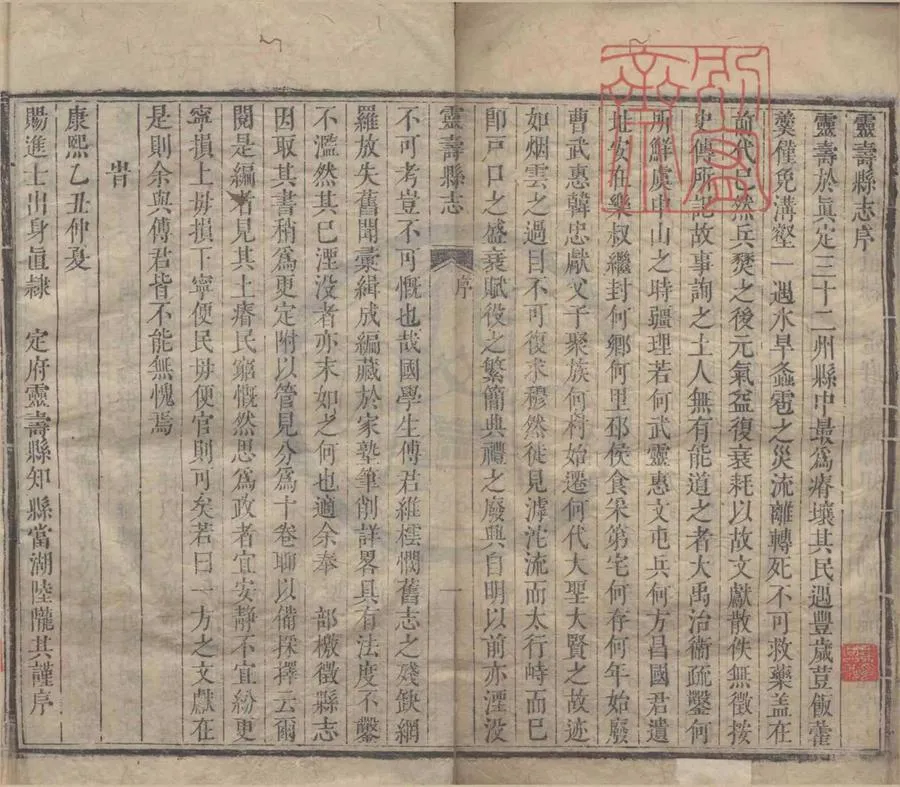 靈壽縣志序
靈壽於眞定三十二州縣中最爲瘠壤其民遇豐歲荳飯藿
羹僅免溝壑一遇水旱螽雹之災流離轉死不可救藥盖在
前代已然兵燹之後元氣益復衰耗以故文獻散佚無徵按
史傳所記故事詢之土人無有能道之者大禹治衞疏鑿何
所鮮虞中山之時疆理若何武靈惠文屯兵何方昌國君遺
址安在樂叔繼封何鄉何里邳侯食采第宅何存何年始廢
曹武惠韓忠獻父子聚族何村始遷何代大聖大賢之故迹
如烟雲之過目不可復求穆然徒見滹沱流而太行峙而已
卽戸口之盛衰賦役之繁簡典禮之廢興自明以前亦湮没
靈壽縣志 序 一
不可考豈不可慨也哉國學生傅君維橒憫舊志之殘缺網
羅放失舊聞彙緝成編藏於家塾筆削詳畧具有法度不鑿
不濫然其已湮没者亦末如之何也適余奉 部檄徵縣志
因取其書稍爲更定附以管見分爲十卷聊以備採擇云爾
閱是編者見其土瘠民窮慨然思爲政者宜安靜不宜紛更
寧損上毋損下寧便民毋便官則可矣若曰一方之文獻在
是則余與傅君皆不能無愧焉
旹
康熙乙丑仲夏
賜進士出身直隷 定府靈壽縣知縣當湖陸隴其謹序